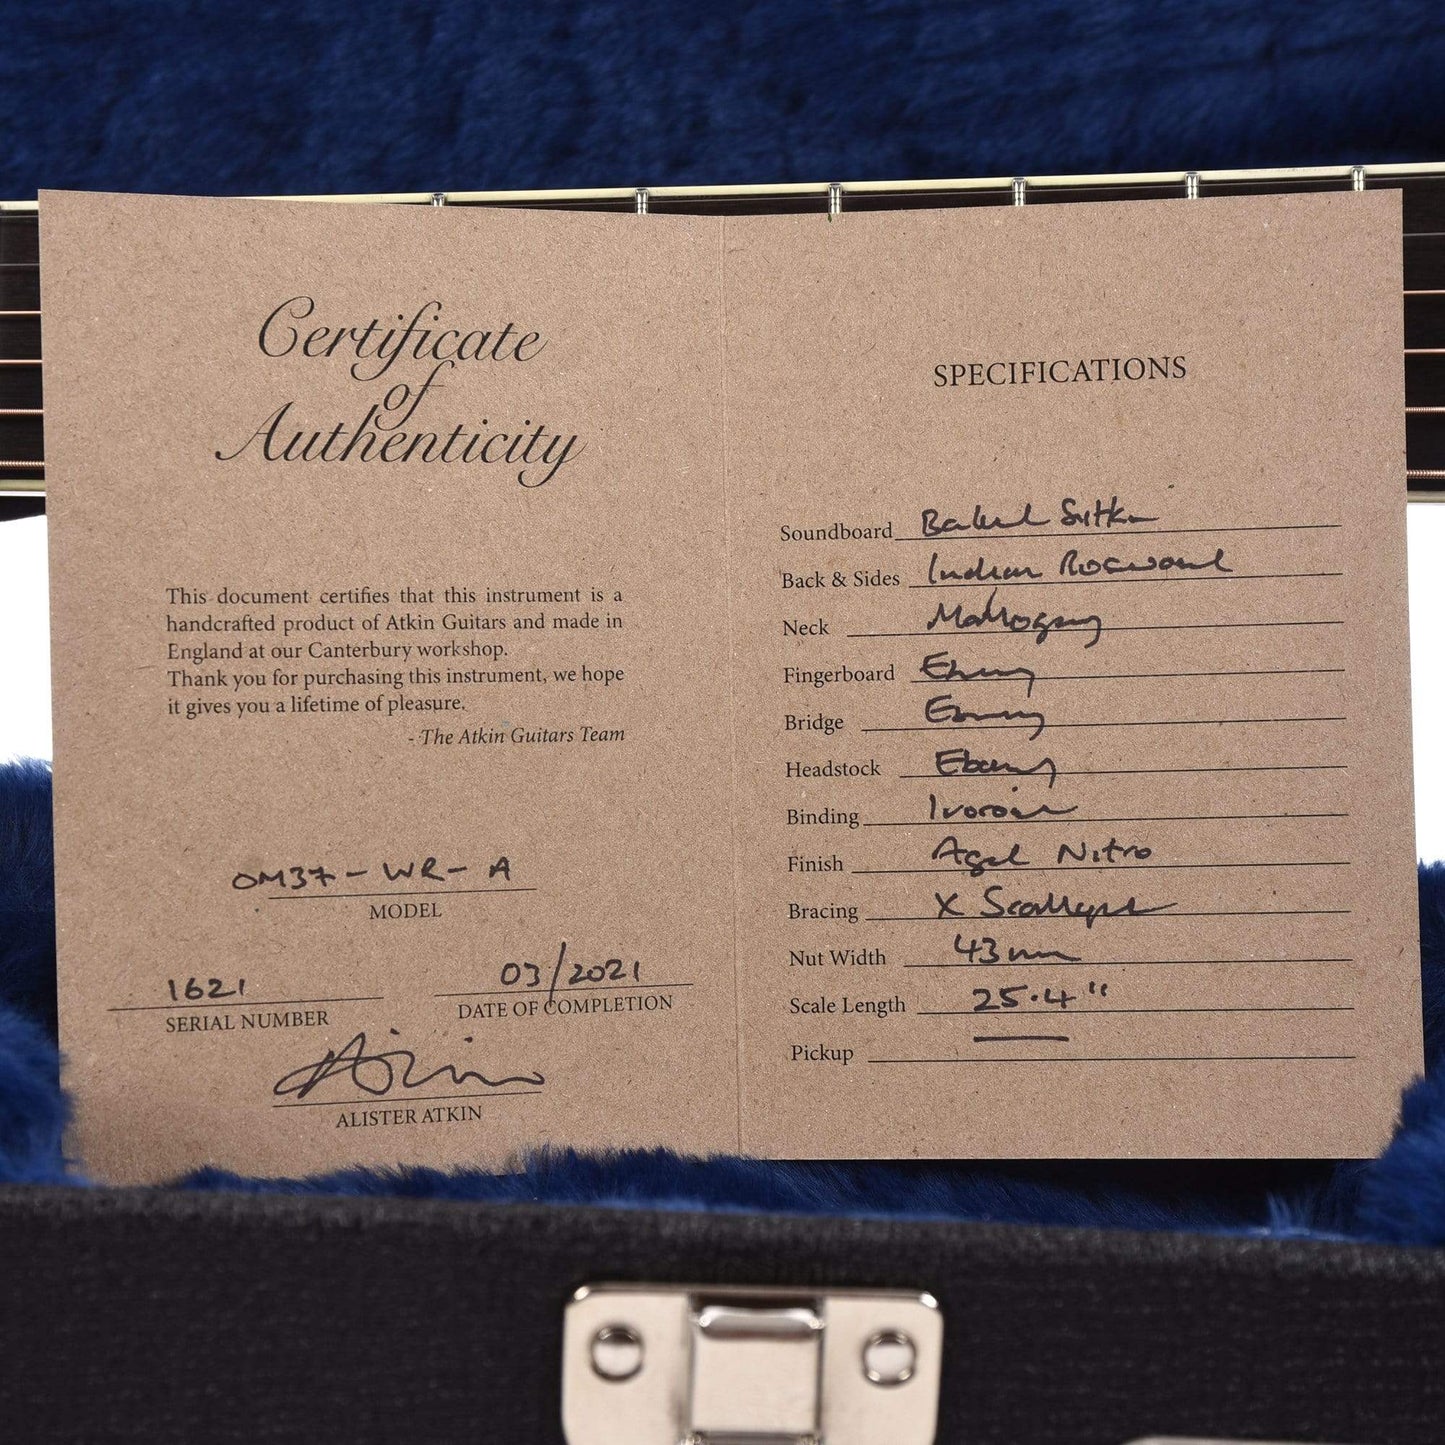 Certificate
of
Authenticity
This document certifies that this instrument is a
handcrafted product of Atkin Guitars and made in
England at our Canterbury workshop.
Thank you for purchasing this instrument, we hope
it gives you a lifetime of pleasure.
- The Atkin Guitars Team
OM37-WR-A
MODEL
1621
SERIAL NUMBER
03/2021
DATE OF COMPLETION
Atkin
ALISTER ATKIN
SPECIFICATIONS
Soundboard Baked Sitka
Back & Sides Indian Rosewood
Neck Mahogany
Fingerboard Ebony
Bridge Ebony
Headstock Ebony
Binding Ivoroid
Finish Aged Nitro
Bracing X Scalloped
Nut Width 43mm
Scale Length 25.4"
Pickup —